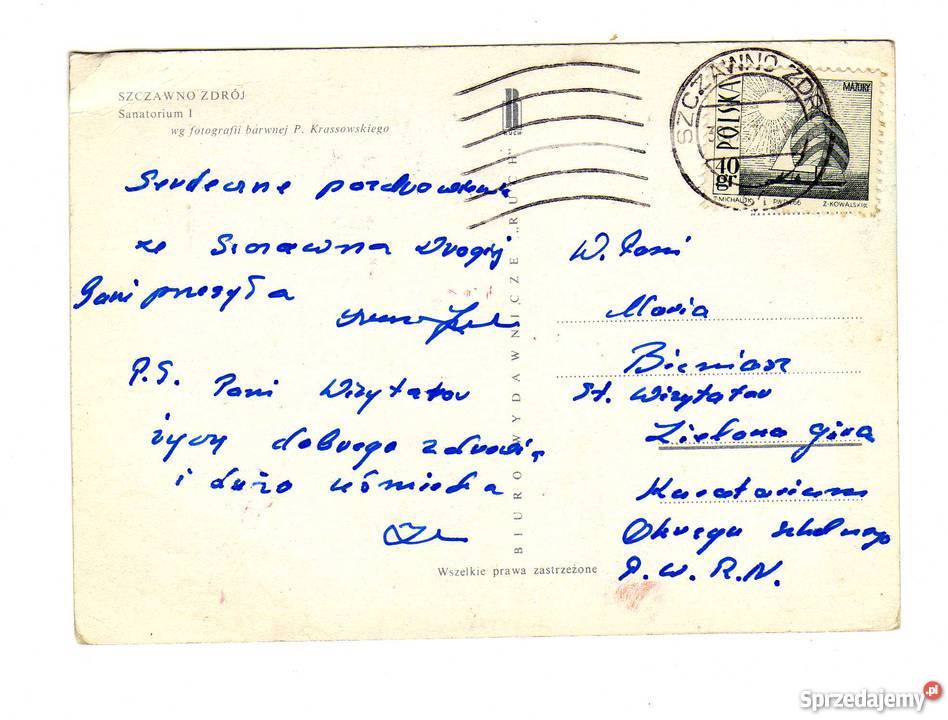 SZCZAWNO ZDRÓJ
Sanatorium I
wg fotografii barwnej P. Krassowskiego
RUCH
SZCZAWNO ZDR
POLSKA
40 gr
MAZURY
T. MICHALUK
PWPW 66
Z. KOWALSKI
Serdeczne pozdrowienia
ze Szczawna Drogiej
Pani przesyła
P.S. Pani Wizytator
życzy dobrego zdrowia
i dużo uśmiechu
BIURO WYDAWNICZE „RUCH"
Wszelkie prawa zastrzeżone
W. Pani
Maria
Bieniasz
St. Wizytator
Zielona Góra
Kuratorium
Okręgu Szkolnego
P.W.R.N.
Sprzedajemy.pl